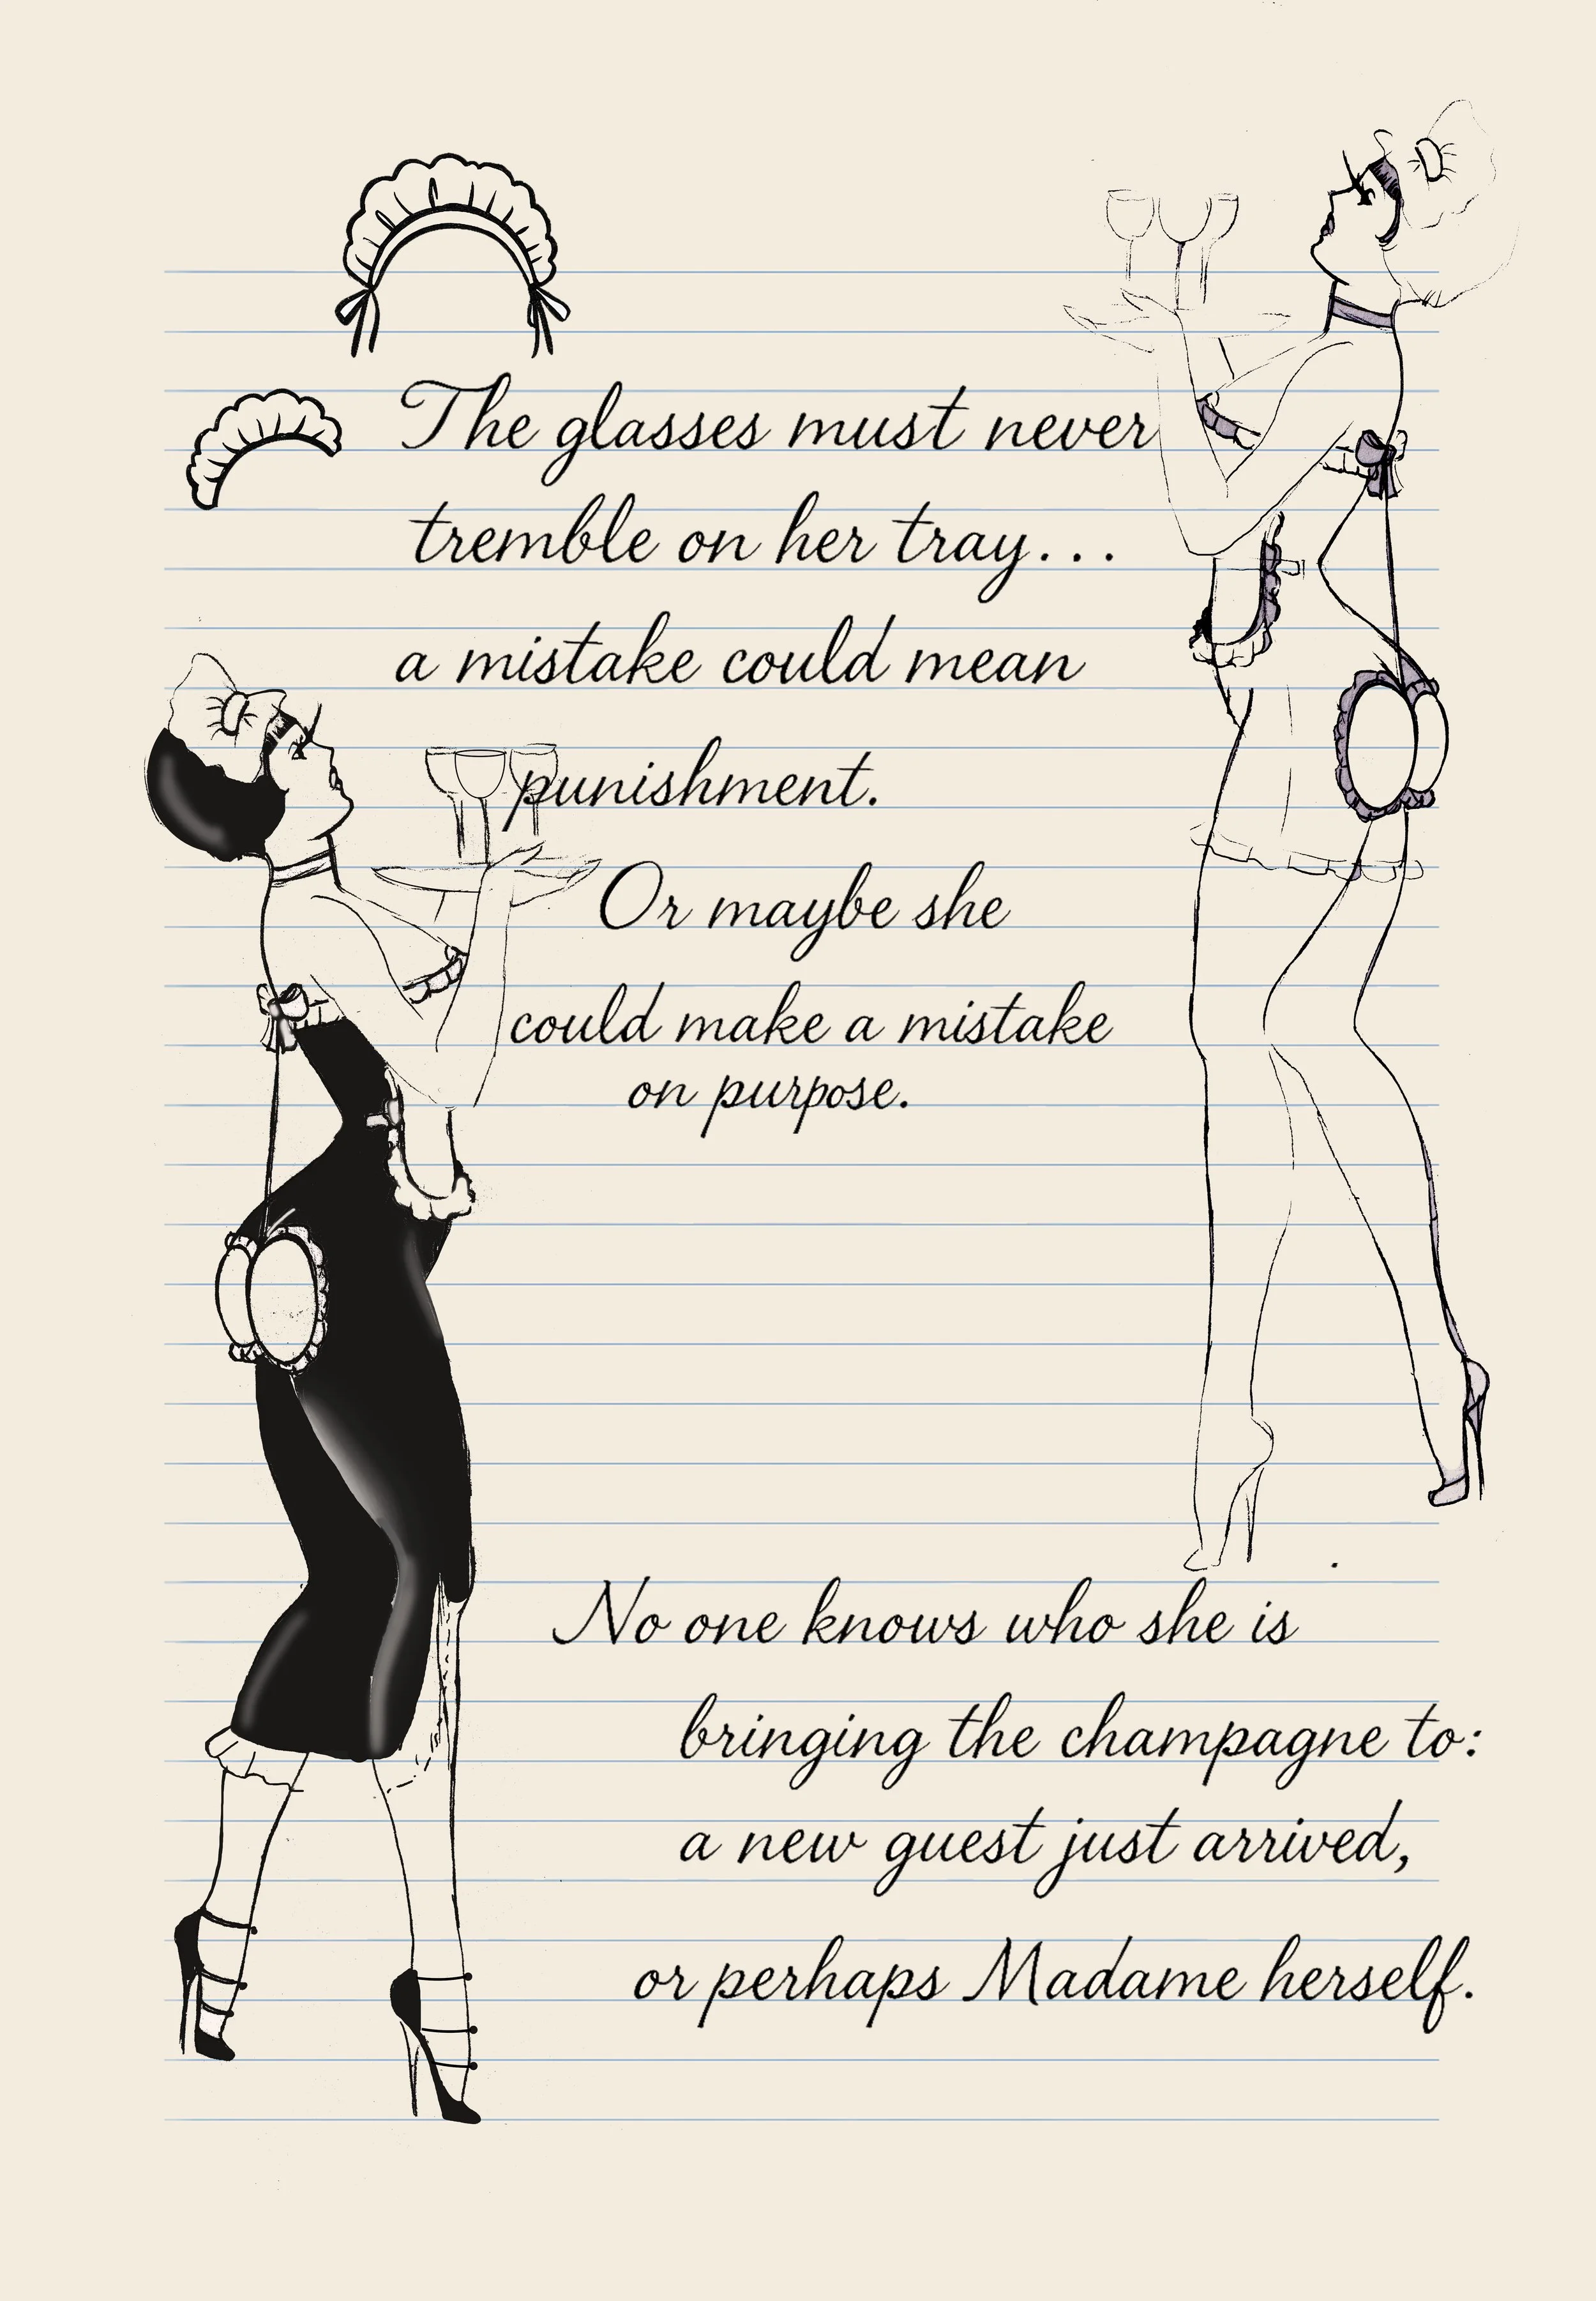 The glasses must never
tremble on her tray...
a mistake could mean
punishment.
Or maybe she
could make a mistake
on purpose.
No one knows who she is
bringing the champagne to:
a new guest just arrived,
or perhaps Madame herself.